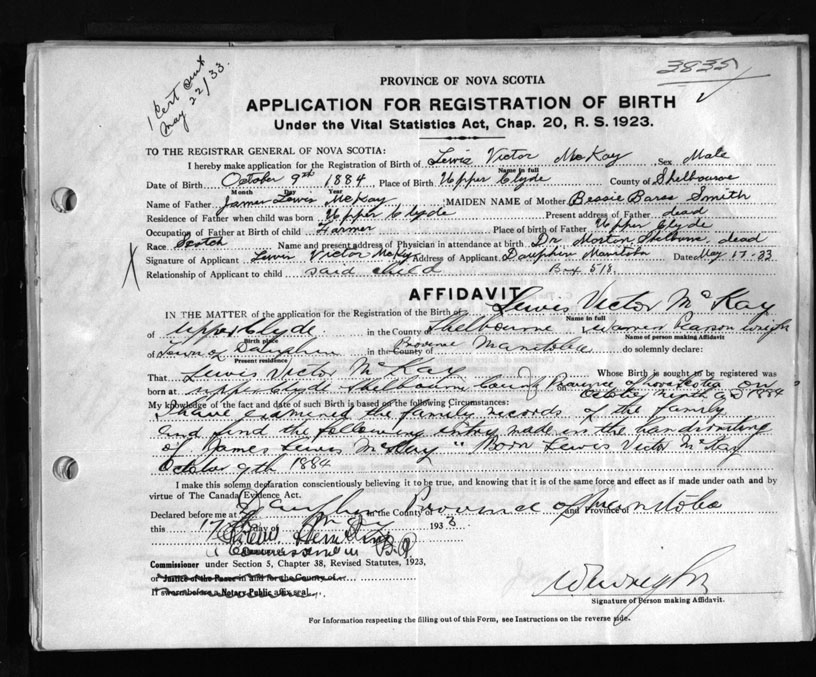 1 Cert sent
May 22/33.
3835
PROVINCE OF NOVA SCOTIA
APPLICATION FOR REGISTRATION OF BIRTH
Under the Vital Statistics Act, Chap. 20, R. S. 1923.
TO THE REGISTRAR GENERAL OF NOVA SCOTIA:
I hereby make application for the Registration of Birth of Lewis Victor McKay Sex Male
Name in full
Date of Birth October 9th 1884 Place of Birth Upper Clyde County of Shelbourne
Month Day Year
Name of Father James Lewis McKay MAIDEN NAME of Mother Bessie Smith
Residence of Father when child was born Upper Clyde Present address of Father dead
Occupation of Father at Birth of child Farmer Place of birth of Father Upper Clyde
Race Scotch Name and present address of Physician in attendance at birth Dr Morton Shelbourne, dead
Signature of Applicant Lewis Victor McKay Address of Applicant Dauphin Manitoba Date May 17-33
Relationship of Applicant to child said child Box 518
AFFIDAVIT
IN THE MATTER of the application for the Registration of the Birth of Lewis Victor McKay
Name in full
of Upper Clyde in the County of Shelbourne I, Pearson Wright
Birth place Name of person making Affidavit
of Town of Dauphin in the County of Province Manitoba do solemnly declare:
Present residence
That Lewis Victor McKay Whose Birth is sought to be registered was
born at upper clyde Shelbourne County Province of Nova Scotia on
on October ninth AD 1884
My knowledge of the fact and date of such Birth is based on the following Circumstances:
I have examined the family records of the family
and find the following entry made in the handwriting
of James Lewis McKay " Born Lewis Victor McKay
October 9th 1884
I make this solemn declaration conscientiously believing it to be true, and knowing that it is of the same force and effect as if made under oath and by
virtue of The Canada Evidence Act.
Declared before me at Dauphin in the County of Province of Manitoba and Province of
this 17th day of May 1933
Commissioner under Section 5, Chapter 38, Revised Statutes, 1923,
or Justice of the Peace in and for the County of
If sworn before a Notary Public affix seal.
Signature of Person making Affidavit.
For Information respecting the filling out of this Form, see Instructions on the reverse side.